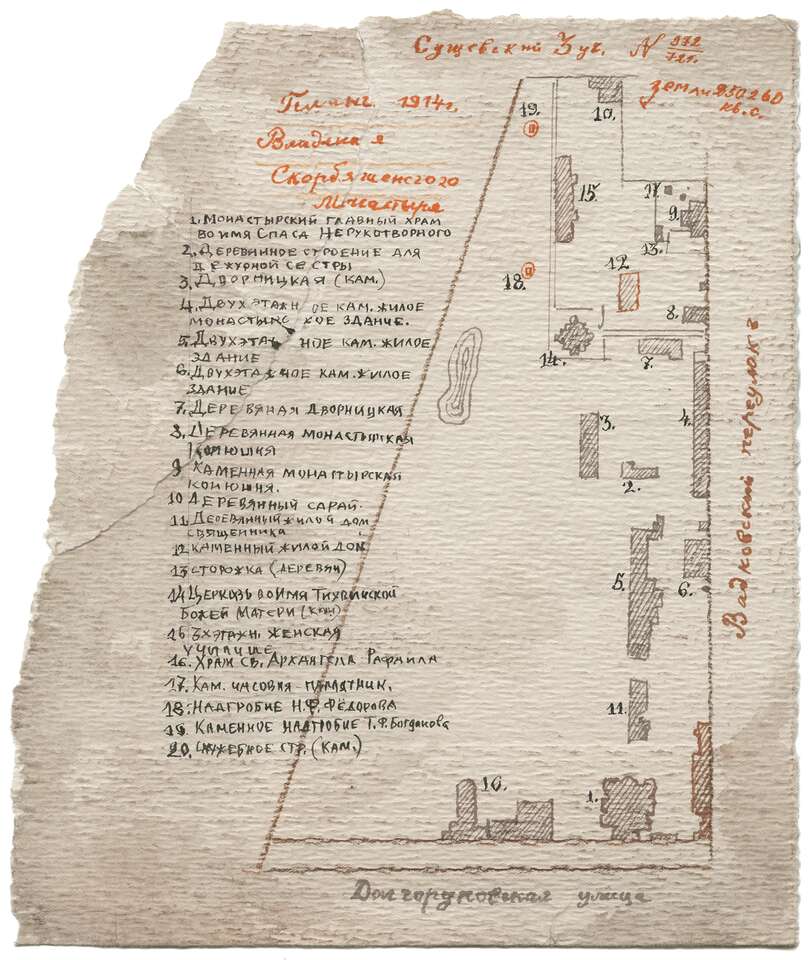 Сущевский 3 уч. N 972/721.
Планъ 1914г.
земли 250260
кв. с.
Владения
Скорбященского
Монастыря
1. Монастырский главный храм
во имя Спаса Нерукотворного
2. Деревянное строение для
дежурной сестры
3. Дворницкая (кам.)
4. Двухэтажное кам. жилое
монастырское здание.
5. Двухэтажное кам. жилое
здание
6. Двухэтажное кам. жилое
здание
7. Деревяная дворницкая
8. Деревянная монастырская
конюшня
9 Каменная монастырская
конюшня.
10 Деревянный сарай.
11. Деревянный жилой дом
священника
12 Каменный жилой дом
13 сторожка (деревян)
14 Церковь во имя Тихвинской
Божей Матери (кам)
16 3хэтажн. женская
училище
16. Храм св. Архангела Рафаила
17. Кам. часовня памятник.
18. Надгробие Н.Ф. Фёдорова
19. Каменное надгробие Т.Ф. Богданова
20. служебное стр. (кам.)
19.
10.
15.
17.
9.
13.
18.
12
8.
14.
7.
3.
4.
2.
5.
6.
11.
10.
1.
Вадковский переулокъ
Долгоруковская улица